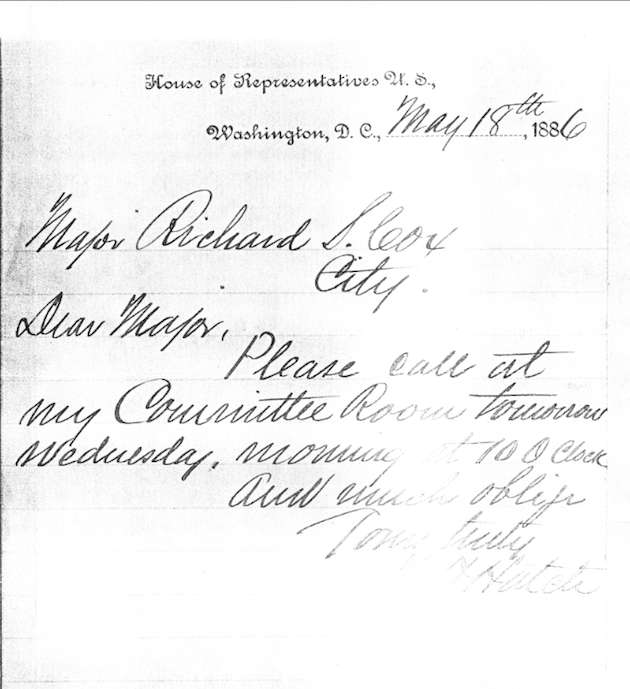 House of Representatives U. S.,
Washington, D. C., May 18th, 1886
Major Richard S. Cox
City.
Dear Major,
Please call at
my Committee Room tomorrow
Wednesday, morning at 10 O Clock
and much oblige
Yours truly
Hatch